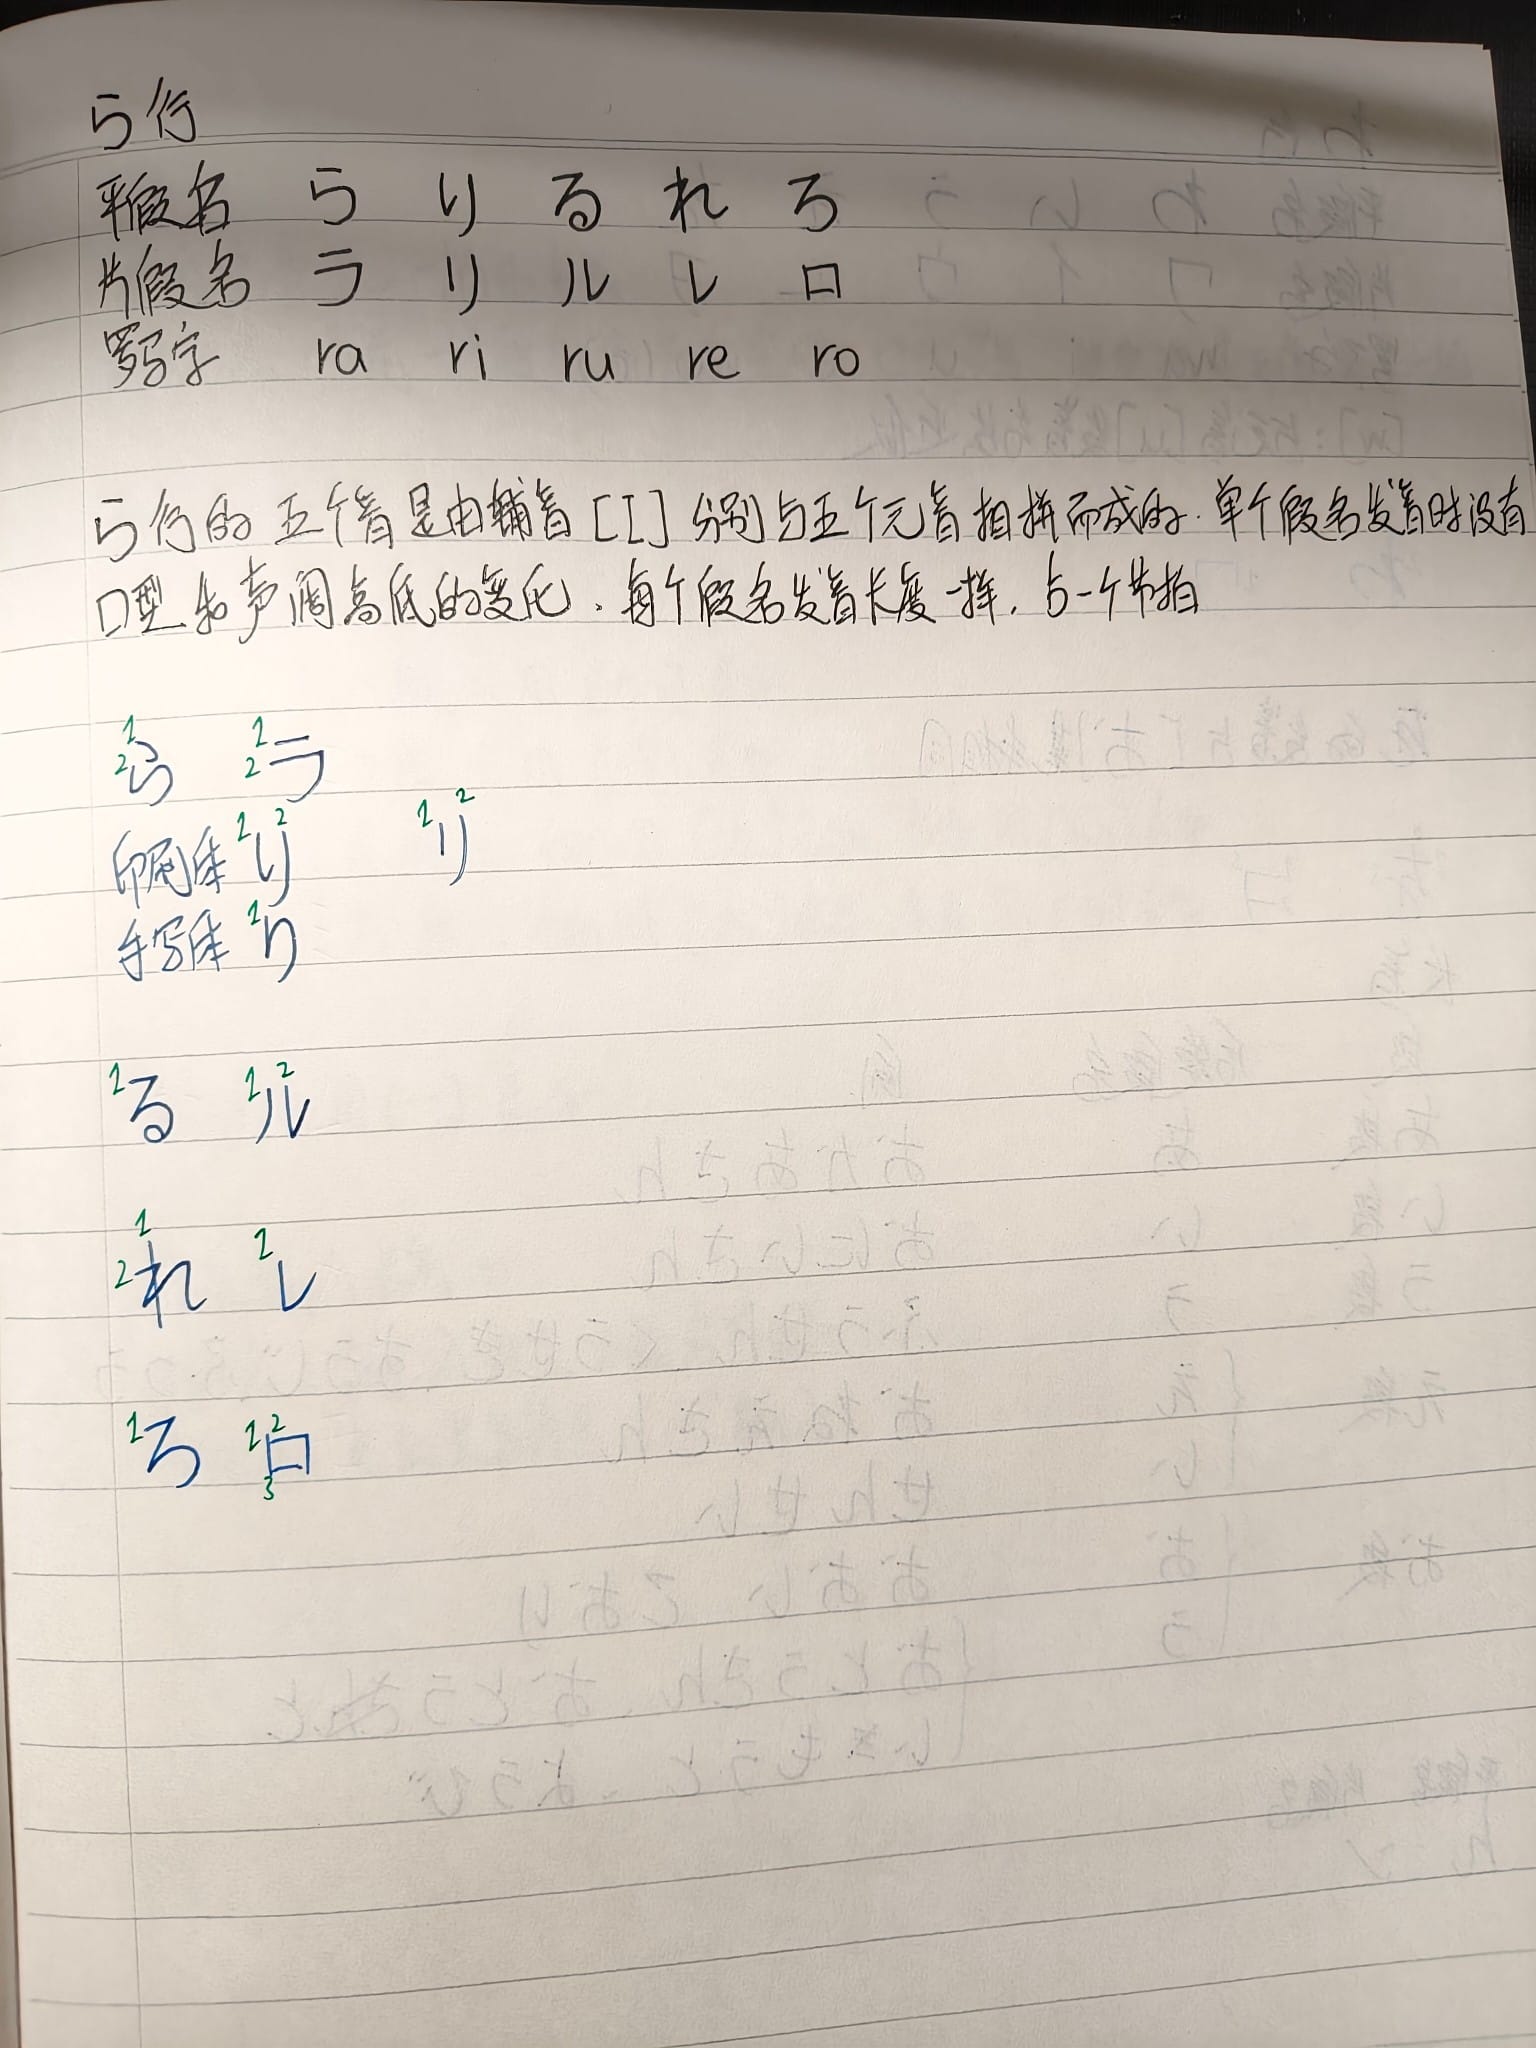 ら行
平假名 ら り る れ ろ
片假名 ラ リ ル レ ロ
罗马字 ra ri ru re ro
ら行的五个音是由辅音[I]分别与五个元音相拼而成的.单个假名发音时没有
口型和声调高低的变化.每个假名发音长度一样,占一个节拍
1 2 ら 1 2 ラ
印刷体 1 2 り 1 2 リ
手写体 1 り
1 る 1 2 ル
1 2 れ 1 レ
1 ろ 1 2 3 ロ